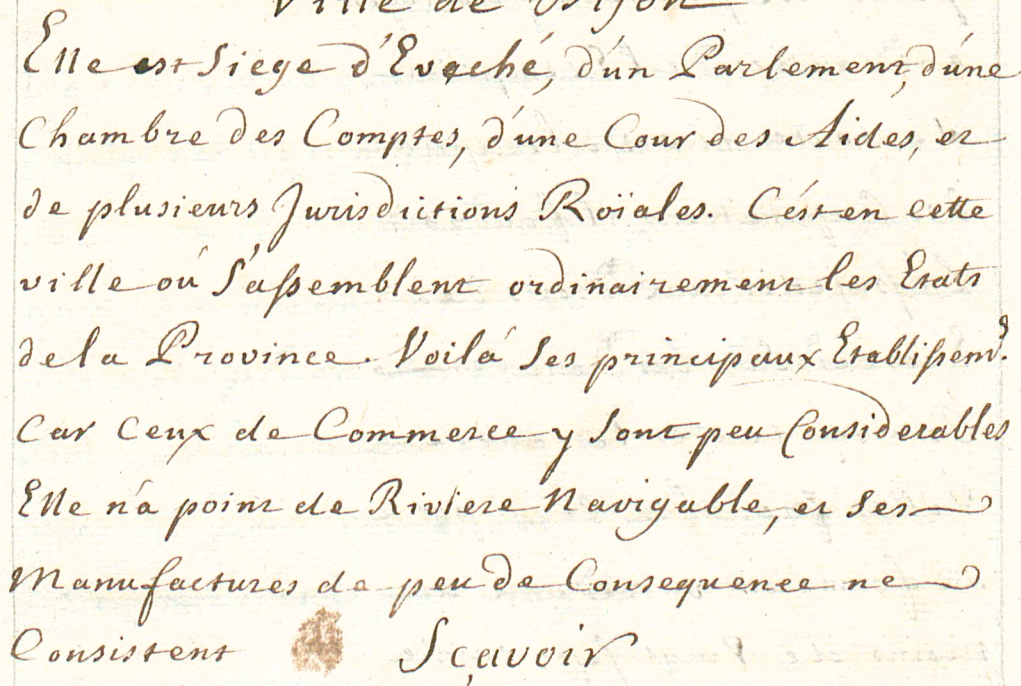 Ville de Dijon
Elle est Siege d'Evêché, d'un Parlement, d'une
Chambre des Comptes, d'une Cour des Aides, et
de plusieurs Jurisdictions Roïales. C'est en cette
ville où S'assemblent ordinairement les Etats
de la Province. Voilà Ses principaux Etablissem.ts
Car Ceux de Commerce y Sont peu Considerables
Elle n'a point de Riviere Navigable, et Ses
Manufactures de peu de Consequence ne
Consistent Sçavoir